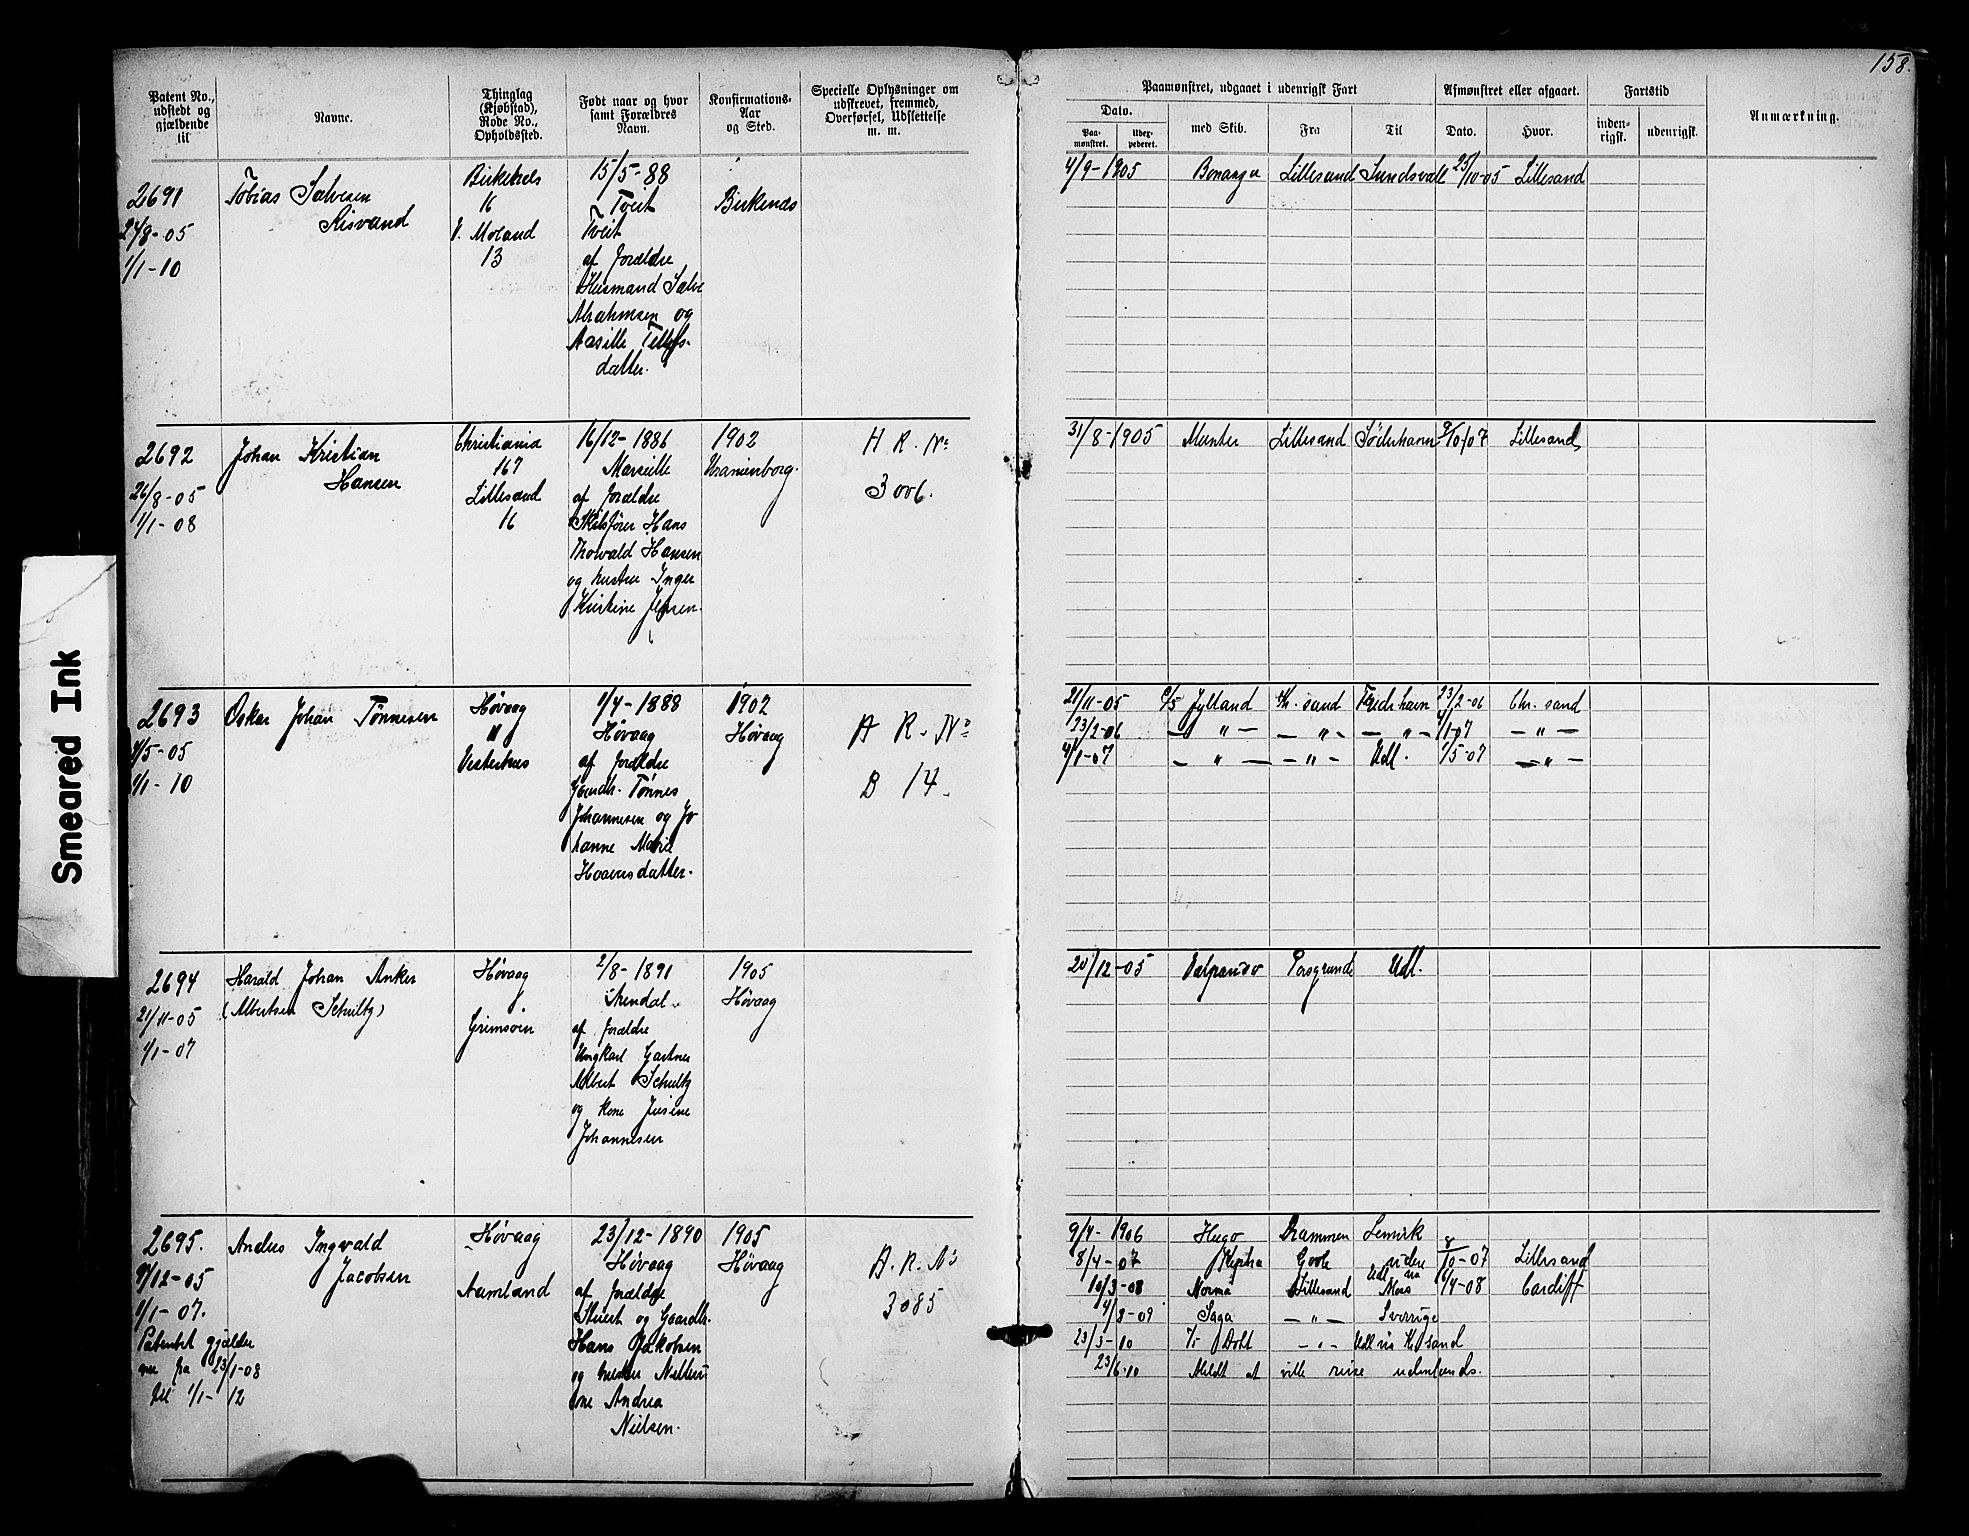 158.
Patent No., udstedt og gjældende til
Navne.
Thinglag (Kjøbstad), Rode No., Opholdssted.
Født naar og hvor samt Forældres Navn.
Konfirmations-Aar og Sted.
Specielle Oplysninger om udskrevet, fremmed, Overførsel, Udslettelse m. m.
Paamønstret, udgaaet i udenrigsk Fart
Dato.
Paa-mønstret.
Udex-pederet.
med Skib.
Fra
Til
Afmønstret eller afgaaet.
Dato.
Hvor.
Fartstid
inden-rigsk.
udenrigsk.
Anmærkning.
2691
24/8-05
1/1-10
Tobias Salvesen
Risvand
Birkenes
16
V. Moland
13
15/5-88
Tveit
Tveit
af Forældre
Husmand Salve
Abrahmsen og
Aasille Tellefs-
datter.
Birkenæs
4/9-1905 Bonanza Lillesand Sundsvall 25/10-05 Lillesand
2692
26/8-05
1/1-08
Johan Kristian
Hansen
Christiania
167
Lillesand
16
16/12-1886
Marseille
af Forældre
Skibsfører Hans
Thorvald Hansen
og hustru Inger
Kristine Jensen.
1902
Uranienborg.
H R. No
3006.
31/8-1905 Munter Lillesand Søderhavn 9/10-07 Lillesand
2693
4/5-05
1/1-10
Oskar Johan Tønnesen
Høvaag
11
Vesterhus
1/4-1888
Høvaag
af Forældre
Gaardb. Tønnes
Johannesen og Jo
hanne Marie
datter.
1902
Høvaag
A R. No
B 14.
21/11-05 D/S Jylland Kr. sand Fredrhavn 23/2-06 Chr. sand
23/2-06 — " — — " — — " — 4/1-07 — " —
4/1-07 — " — — " — Udl. 1/5-07 — " —
2694
21/11-05
1/1-07
Harald Johan Anker
(Albertsen Schultz)
Høvaag
Grimsøen
2/8-1891
Arendal.
af Forældre
Ungkarl Gartner
Albert Schultz
og Kone
Johannesen
1905
Høvaag
20/12-05 Valparaiso Porsgrund Udl.
2695.
9/12-05
1/1-07.
Patentet gjælder
nu fra 23/1-08
til 1/1-12
Anders Ingvald
Jacobsen
Høvaag
Aamland
23/12-1890
Høvaag
af Forældre
Stuert og Gaardbr.
Hans Jakobsen
og hustru
Andrea
Nielsen.
1905
Høvaag
A. R. No
3085
9/4-1906 Hugo Drammen Lemvik
8/4-07 Goole 8/10-07 Lillesand
10/3-08 Norma Lillesand Udl via Moss 6/4-08 Cardiff
4/8-09 Saga — " — Sverrige
23/3-10 — " — Udl via Kr sand
23/6-10 Meldt at ville reise udenlands.
Smeared Ink